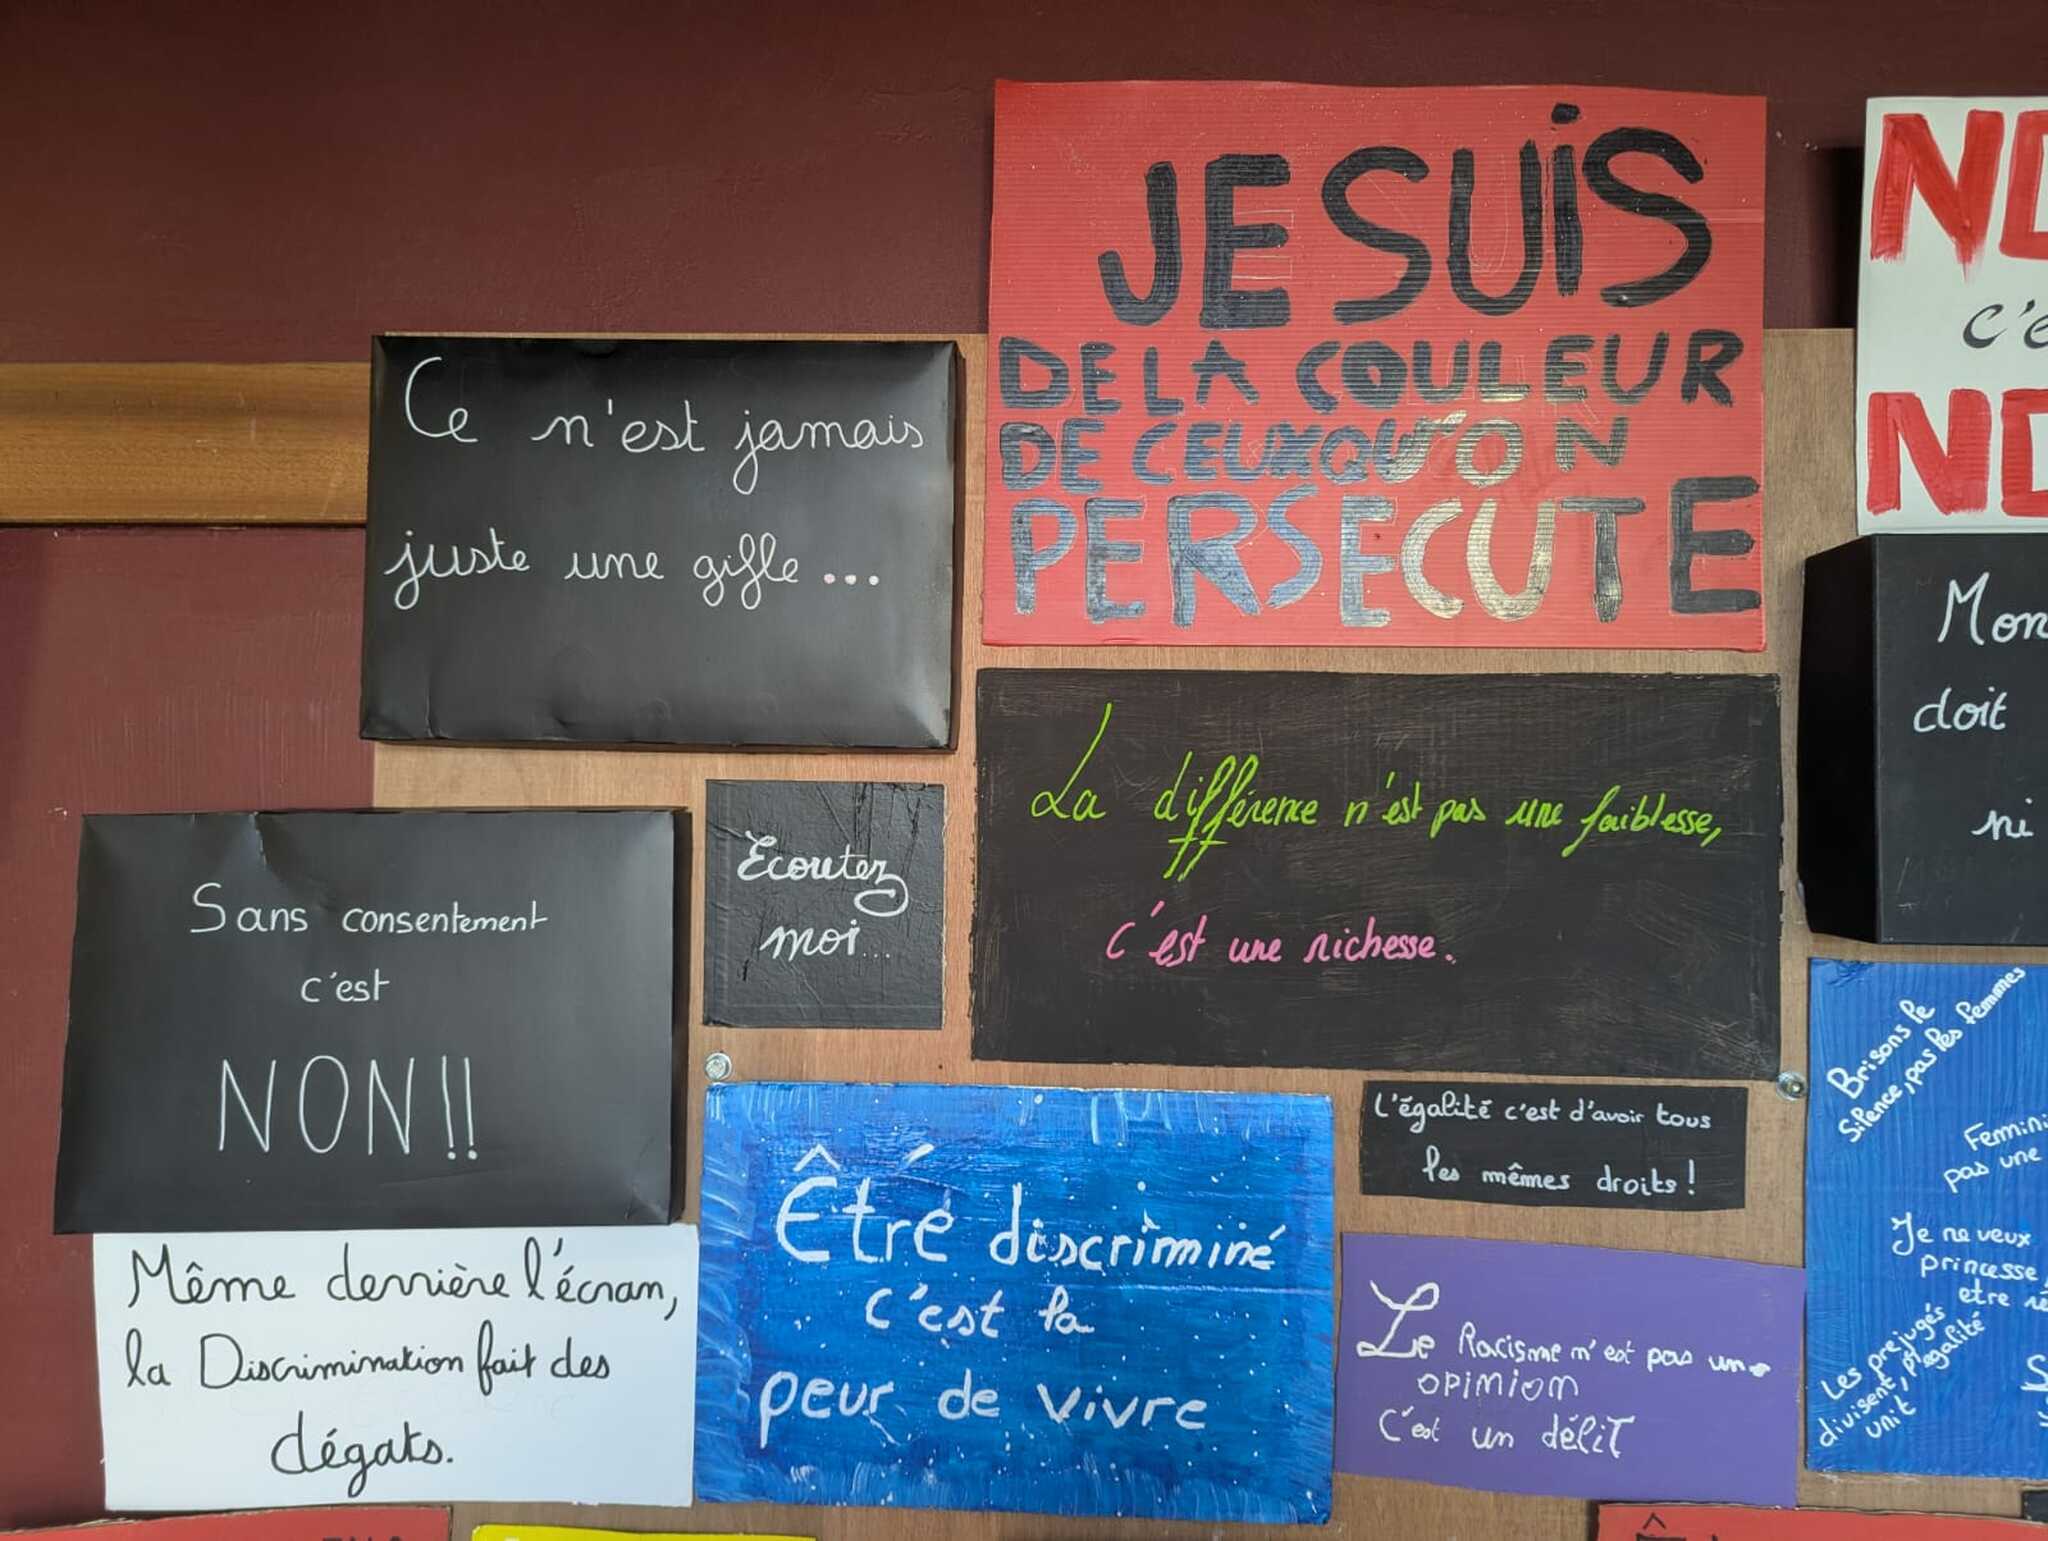 JE SUiS
DE LA COULEUR
DE CEUX QU'ON
PERSECUTE
Ce n'est jamais
juste une gifle...
La différence n'est pas une faiblesse,
c'est une richesse.
Ecoutez
moi...
Sans consentement
c'est
NON!!
L'égalité c'est d'avoir tous
les mêmes droits!
Être discriminé
c'est la
peur de vivre
Même derrière l'écran,
la Discrimination fait des
dégats.
Le Racisme n'est pas une
opinion
C'est un délit
c'e
Mon
doit
ni
Brisons le
silence, pas les femmes
Femini
pas une
Je ne veux
princesse,
etre
Les prejugés
divisent, l'egalité
unit